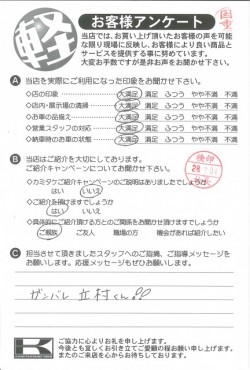 軽
お客様アンケート
当店では、お買い上げ頂いたお客様の声を可能
な限り現場に反映し、お客様により良い商品と
サービスを提供する事に努めています。
大変お手数ですが是非お声をお聞かせ下さい。
A 当店を実際にご利用になった印象をお聞かせ下さい。
◇店の印象 大満足 満足 ふつう やや不満 不満
◇店内・展示場の清掃 大満足 満足 ふつう やや不満 不満
◇お車の品揃え 大満足 満足 ふつう やや不満 不満
◇営業スタッフの対応 大満足 満足 ふつう やや不満 不満
◇納車時のお車の状態 大満足 満足 ふつう やや不満 不満
B 当店はご紹介を大切にしております。
ご紹介についてお聞かせ下さい。
◇カミタケご紹介キャンペーンのご説明はありましたでしょうか
はい いいえ
◇ご紹介を頂けますでしょうか
はい いいえ
◇具体的にご紹介頂ける方とのご関係をお聞かせ頂けますでしょうか
ご親族 ご友人 職場の方 機会があれば紹介したい
C 担当させて頂きましたスタッフへのご指摘、ご指導メッセージを
お願いします。応援メッセージもぜひお願いします。
ガンバレ 立村くん!!
K
ご協力に心よりお礼を申し上げます。
今後とも宜しくお引き立てご愛顧の程お願い申し上げます。
またのご来店を心からお待ちしております。